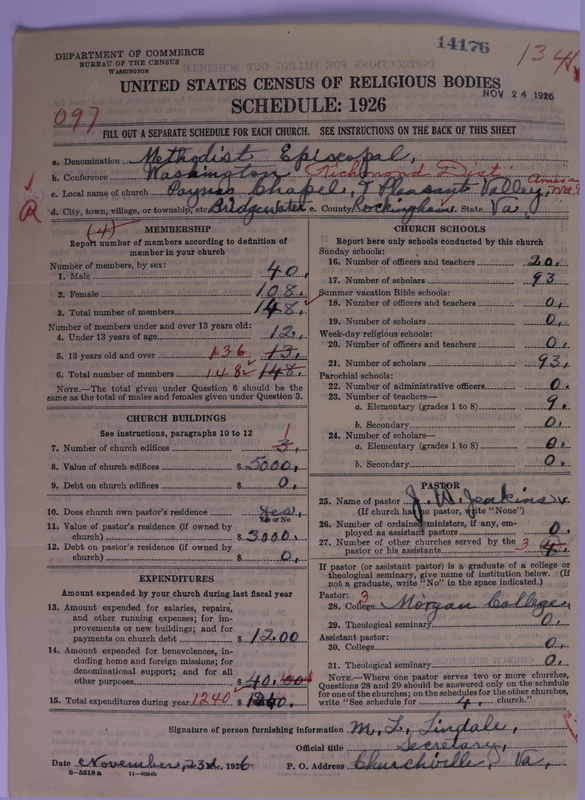 14176
1344
DEPARTMENT OF COMMERCE
BUREAU OF THE CENSUS
WASHINGTON
UNITED STATES CENSUS OF RELIGIOUS BODIES
NOV 24 1926
SCHEDULE: 1926
097
FILL OUT A SEPARATE SCHEDULE FOR EACH CHURCH. SEE INSTRUCTIONS ON THE BACK OF THIS SHEET
a. Denomination Methodist Episcopal,
b. Conference Washington Richmond Dist.
c. Local name of church Paynes Chapel, & Pleasant Valley,
d. City, town, village, or township, etc. Bridgewater e. County Rockingham State Va,
R
(4)
MEMBERSHIP
Report number of members according to definition of member in your church
Number of members, by sex:
1. Male 40,
2. Female 108.
3. Total number of members 148,
Number of members under and over 13 years old:
4. Under 13 years of age 12,
5. 13 years old and over 136 13,
6. Total number of members 148 148
NOTE.—The total given under Question 6 should be
same as the total of males and females given under Question 3.
CHURCH BUILDINGS
See instructions, paragraphs 10 to 12
7. Number of church edifices 1 3,
8. Value of church edifices $ 5000,
9. Debt on church edifices $ 0,
10. Does church own pastor's residence? Yes,
Yes or No
11. Value of pastor's residence (if owned by
church) $ 3000,
12. Debt on pastor's residence (if owned by
church) $ 0,
EXPENDITURES
Amount expended by your church during last fiscal year
13. Amount expended for salaries, repairs,
and other running expenses; for im-
provements or new buildings; and for
payments on church debt $ 1200
14. Amount expended for benevolences, in-
cluding home and foreign missions; for
denominational support; and for all
other purposes $ 40.
15. Total expenditures during year 1240 $
CHURCH SCHOOLS
Report here only schools conducted by this church
Sunday schools:
16. Number of officers and teachers 20,
17. Number of scholars 93
Summer vacation Bible schools:
18. Number of officers and teachers 0,
19. Number of scholars 0,
Week-day religious schools:
20. Number of officers and teachers 0,
21. Number of scholars 93,
Parochial schools:
22. Number of administrative officers 0,
23. Number of teachers—
a. Elementary (grades 1 to 8) 9,
b. Secondary 0,
24. Number of scholars—
a. Elementary (grades 1 to 8) 0,
b. Secondary 0,
PASTOR
25. Name of pastor J. W. Jenkins
(If church has no pastor, write "None")
26. Number of ordained ministers, if any, em-
ployed as assistant pastors 0,
27. Number of other churches served by the
pastor or his assistants 3 4,
If pastor (or assistant pastor) is a graduate of a college or
theological seminary, give name of institution below. (If
not a graduate, write "No" in the space indicated.)
Pastor: 3
28. College Morgan College
29. Theological seminary 0,
Assistant pastor:
30. College 0,
31. Theological seminary 0,
NOTE.—Where one pastor serves two or more churches,
Questions 28 and 29 should be answered only on the schedule
for one of the churches; on the schedules for the other churches,
write "See schedule for 4, church."
Signature of person furnishing information M. L. Tindale,
Official title Secretary,
Date November, 23d, 1926 P. O. Address Churchville, Va,
8—5518a